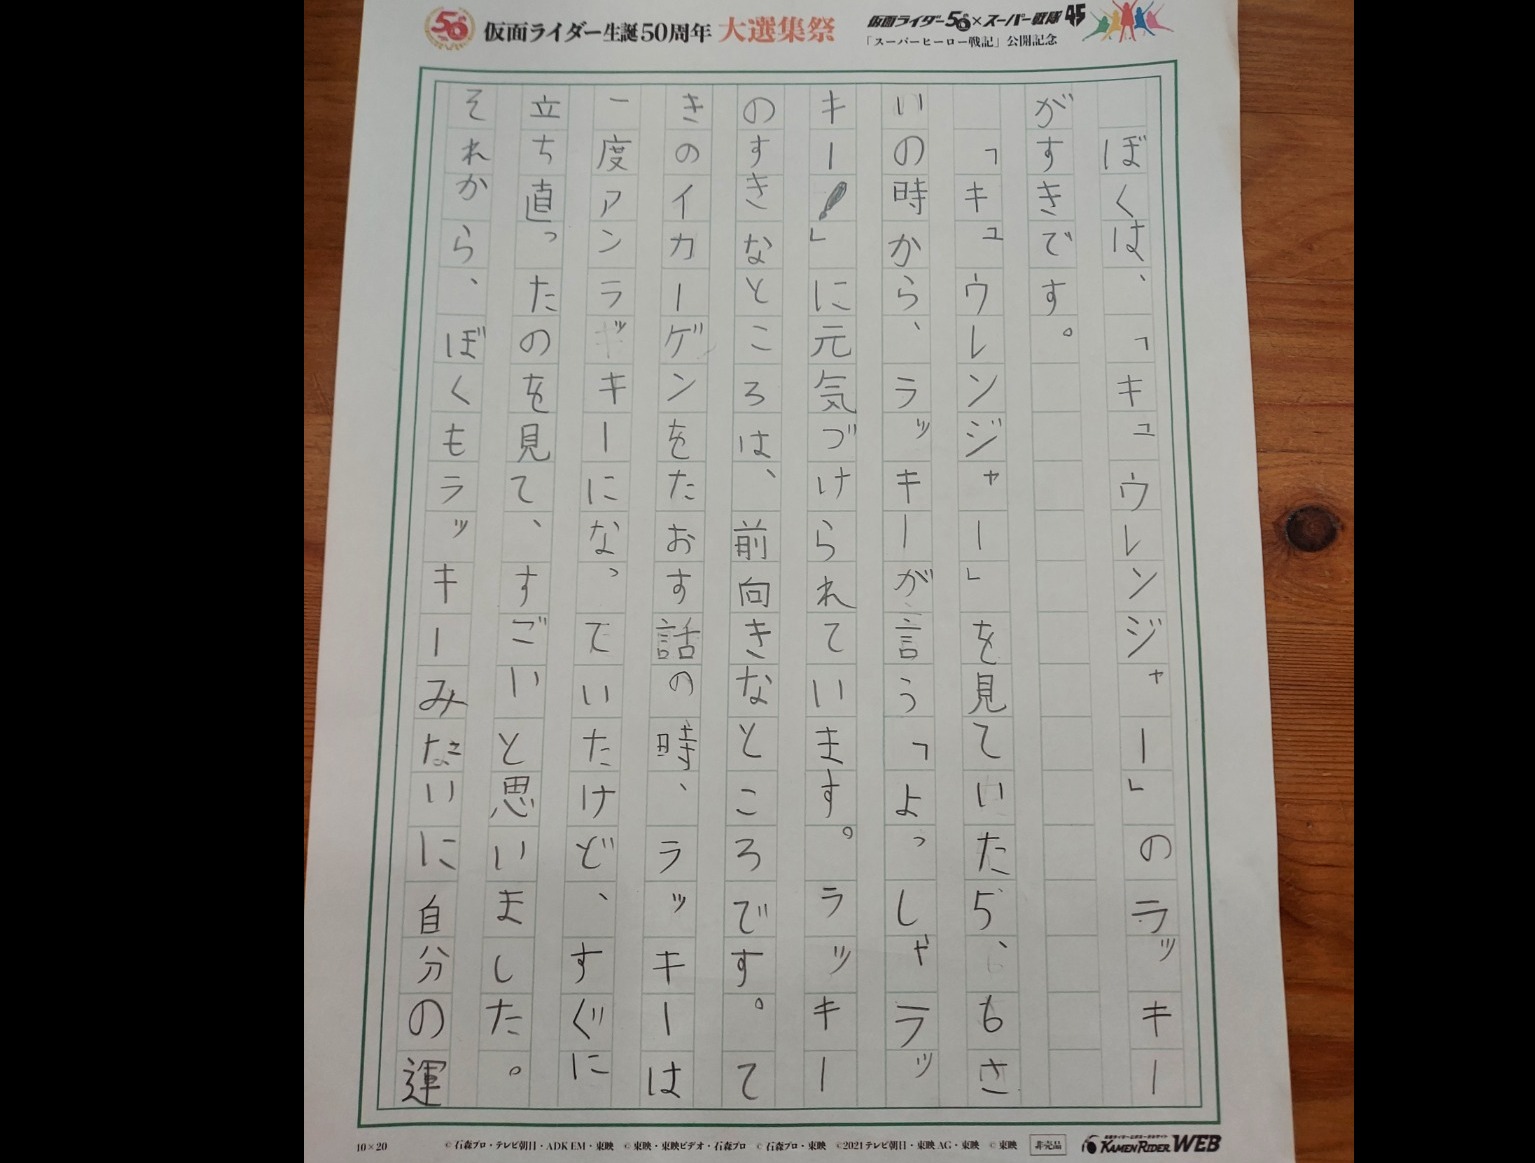 仮面ライダー生誕50周年 大選集祭
仮面ライダー50×スーパー戦隊45
「スーパーヒーロー戦記」公開記念
ぼくは、「キュウレンジャー」のラッキー
がすきです。
「キュウレンジャー」を見ていたら、もさ
いの時から、ラッキーが言う「よっしゃラッ
キー!」に元気づけられています。ラッキー
のすきなところは、前向きなところです。て
きのイカーゲンをたおす話の時、ラッキーは
一度アンラッキーになっていたけど、すぐに
立ち直ったのを見て、すごいと思いました。
それから、ぼくもラッキーみたいに自分の運
10×20
©石森プロ・テレビ朝日・ADK EM・東映 ©東映・東映ビデオ・石森プロ ©石森プロ・東映 ©2021テレビ朝日・東映AG・東映 ©東映
非売品
KAMEN RIDER WEB